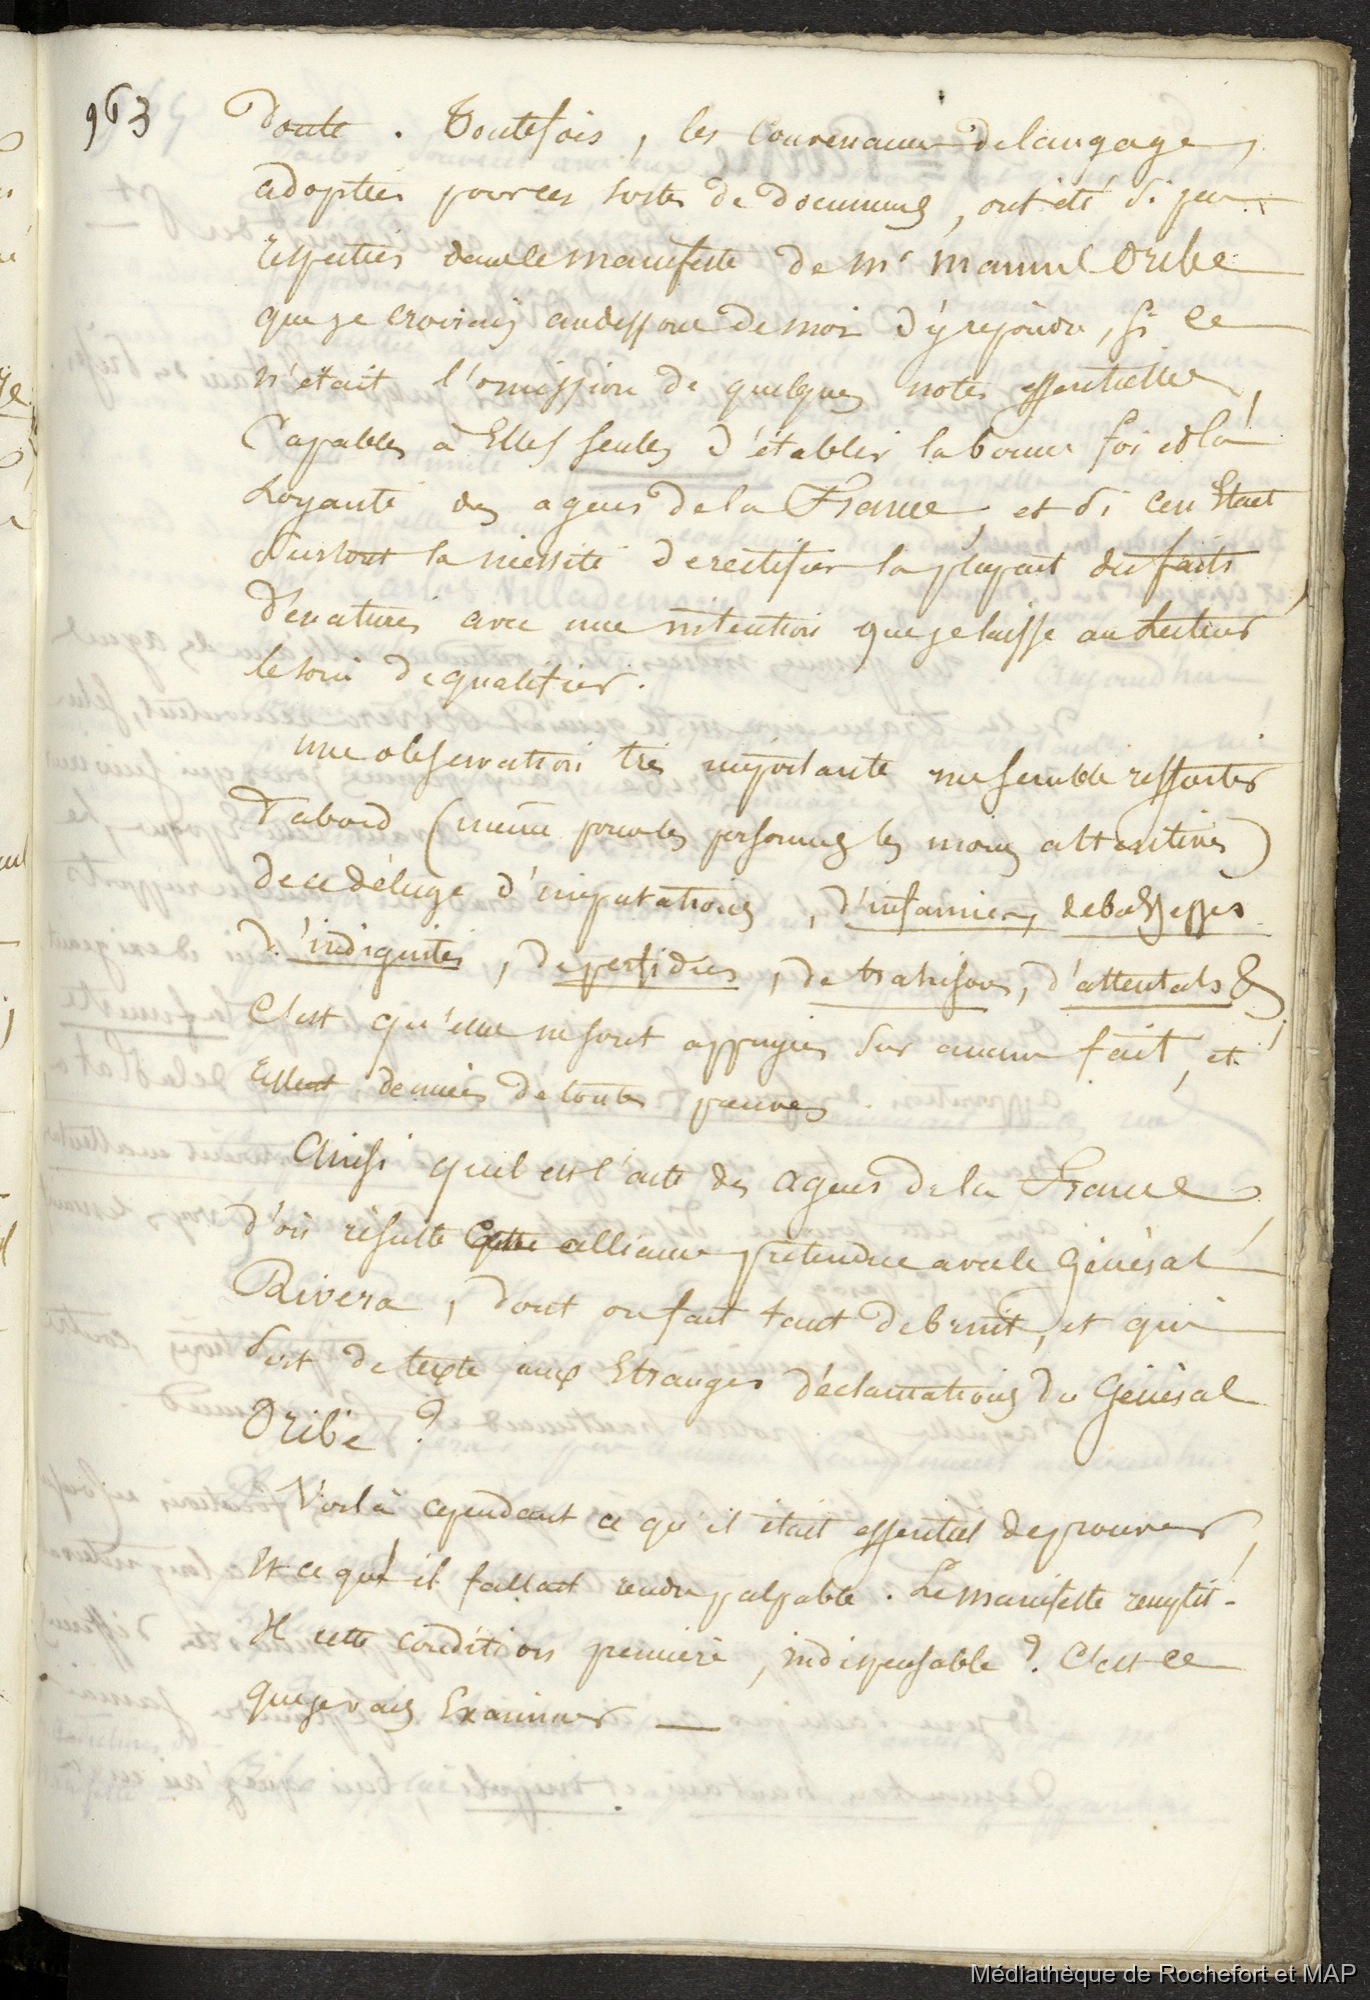 963
doute. Toutefois, les convenances de langage,
adoptées pour ces sortes de documens, ont été si peu
respectées dans le manifeste de Mr Manuel Oribe
que je croirais audessous de moi d'y rejoindre, si ce
n'était l'omission de quelques notes essentielles,
Capables à Elles seules d'établir la bonne foi et la
Loyauté des agens de la France, et si ce n'Etait
surtout la nécessité de rectifier la plupart des faits
dénaturés avec une intention que je laisse au Lecteur
le soin de qualifier.
une observation très importante me semble ressortir
d'abord (même pour les personnes les moins attentives)
de ce déluge d'imputations, d'infamies, de bassesses
d'indignités, de perfidies, de trahisons, d'attentats &
C'est qu'elles ne sont appuyées sur aucun fait, et
restent denuées de toutes preuves
Ainsi quel est l'acte des agens de la France
d'où résulte Cette alliance prétendue avec le Général
Rivera, dont on fait tant de bruit, et qui
sert de texte aux Etranges déclamations du Général
Oribe ?
Voilà cependant ce qu'il était essentiel de prouver,
Et ce qu'il fallait rendre palpable. Le manifeste remplit-
Il cette condition première, indispensable ? C'est ce
que je vais Examiner —
Médiathèque de Rochefort et MAP